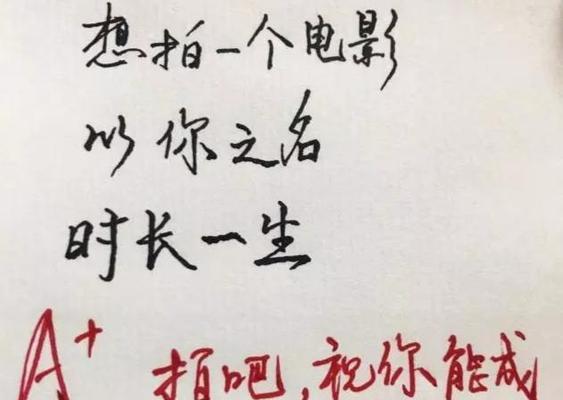 想拍一个电影
以你之名
时长一生
A+ 拍吧,祝你能成